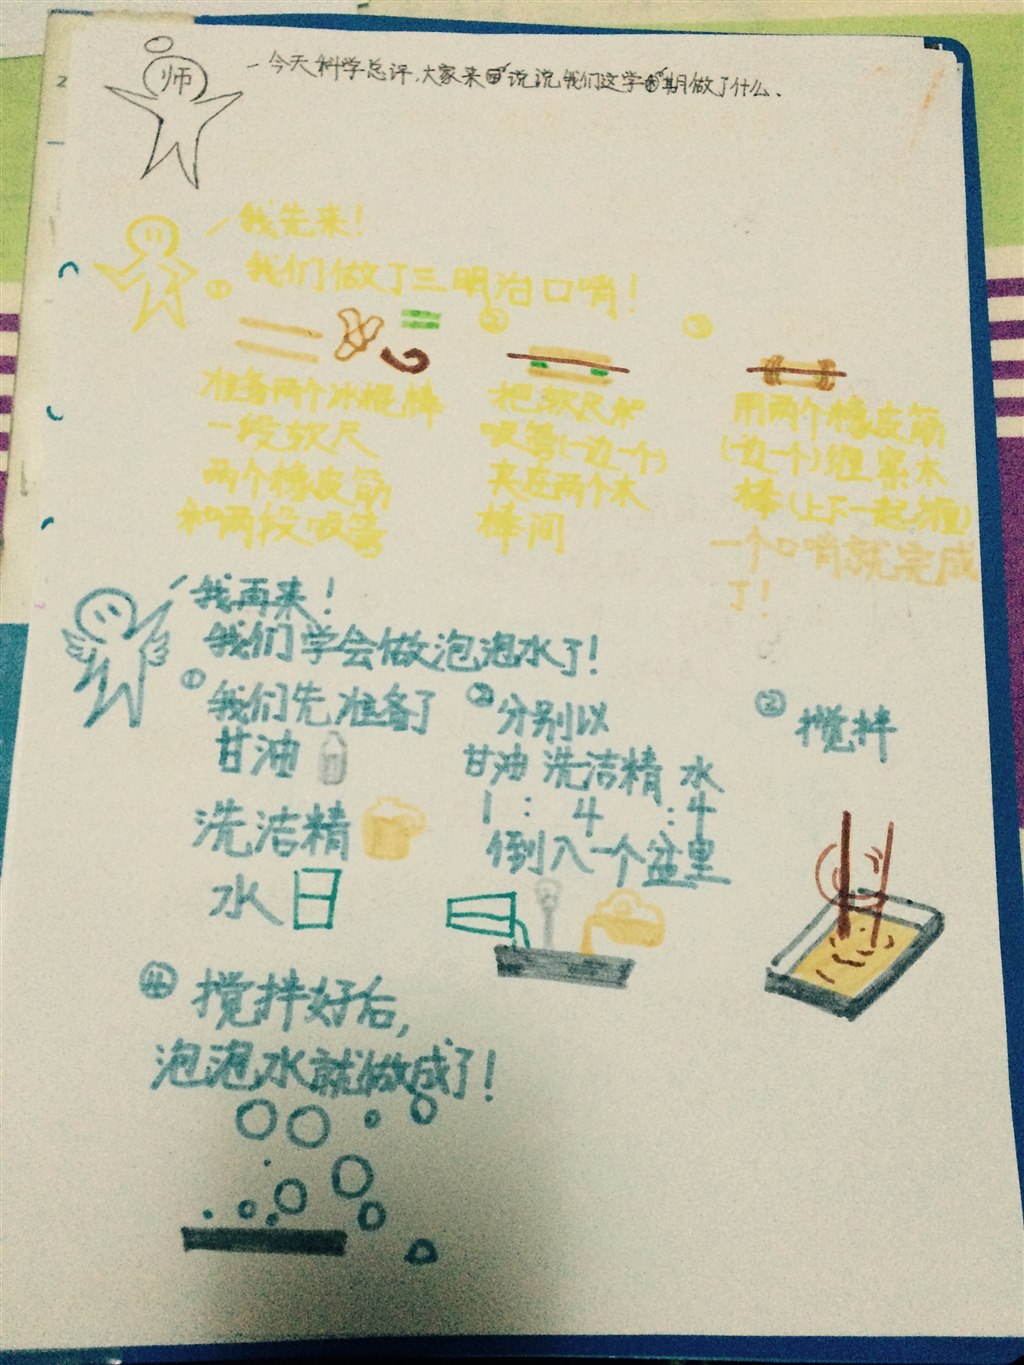 师
今天科学总评,大家来说说我们这学期做了什么.
我先来!
我们做了三明治口哨!
①
准备两个冰棍棒
一段软尺
两个橡皮筋
和两段吸管
②
把软尺和
吸管(一边一个)
夹在两个木
棒间
③
用两个橡皮筋
(一边一个)缠紧木
棒(上下一起缠)
一个口哨就完成
了!
我再来!
我们学会做泡泡水了!
①
我们先准备了
甘油
洗洁精
水
②
分别以
甘油 洗洁精 水
1 : 4 : 4
倒入一个盆里
②
搅拌
④ 搅拌好后,
泡泡水就做成了!